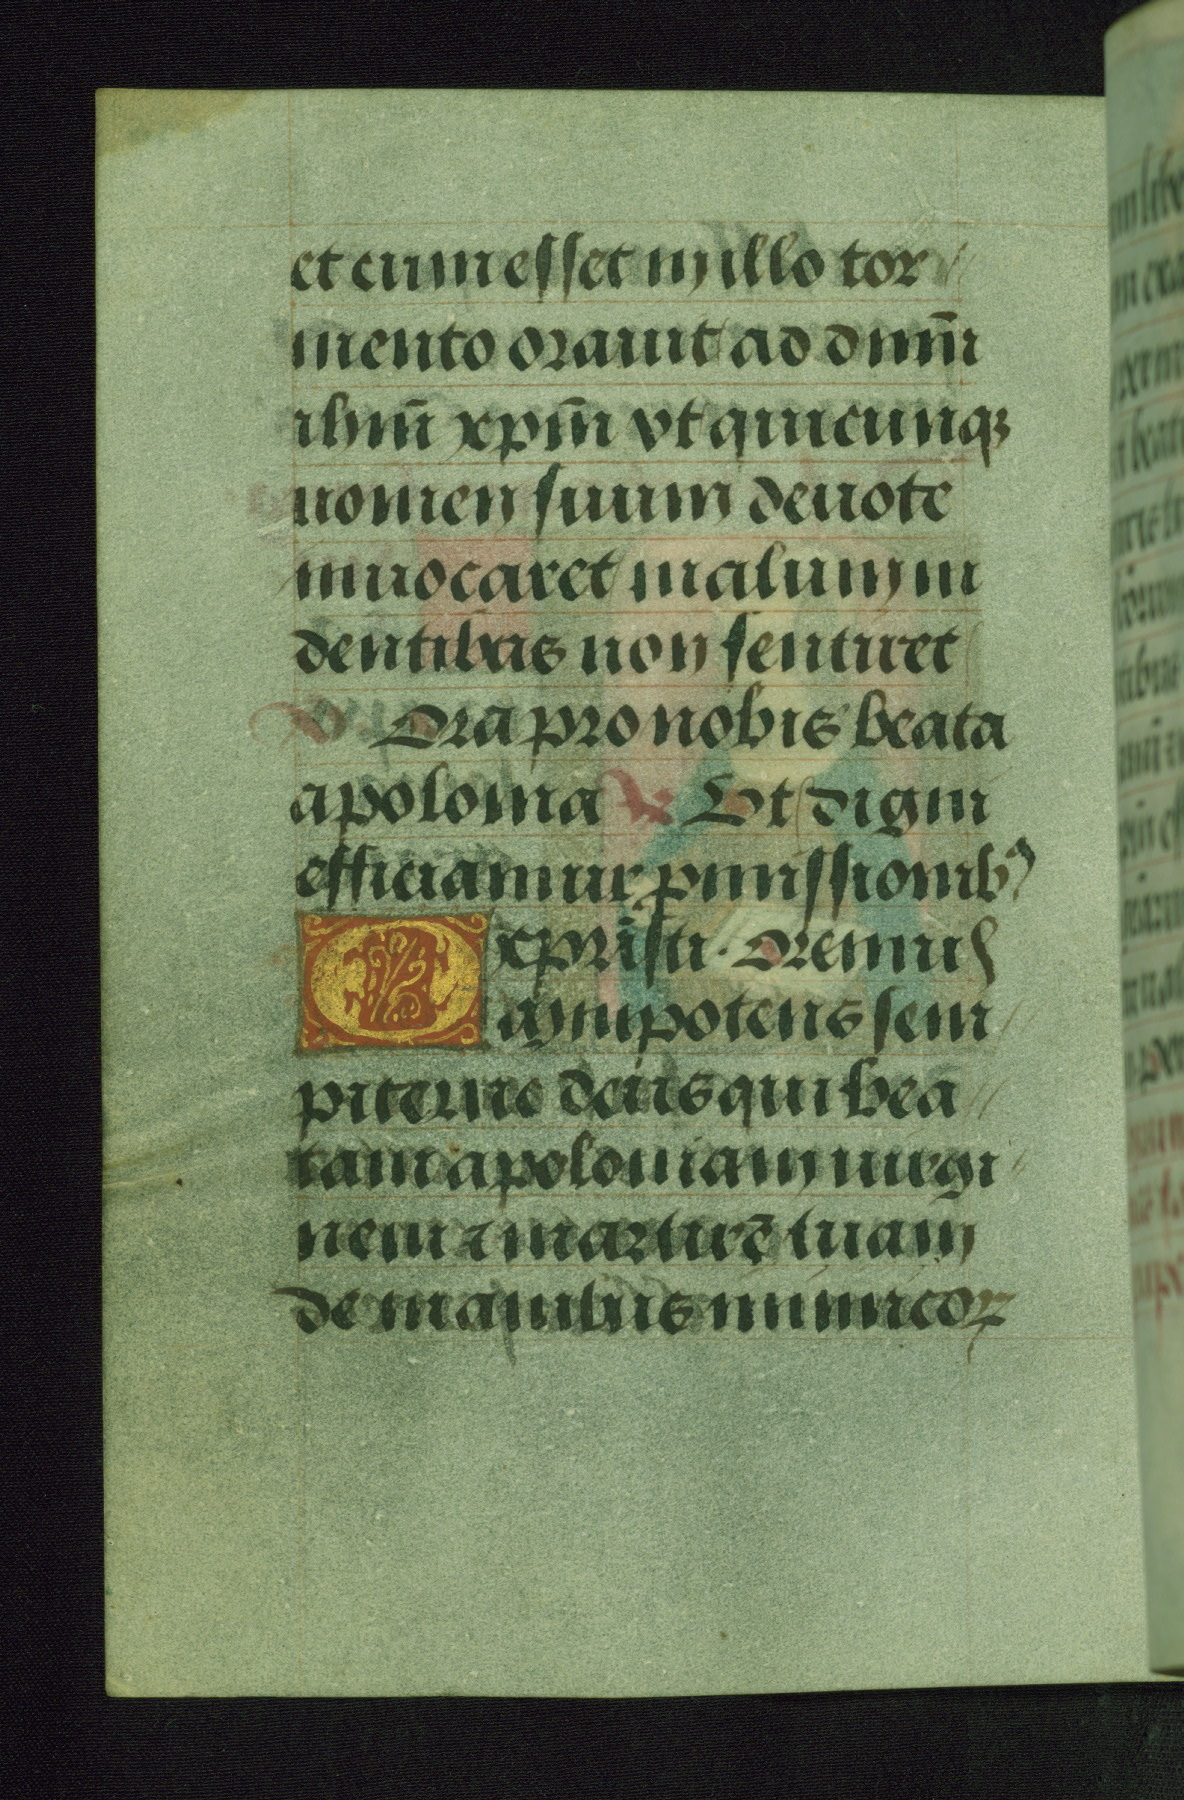 et cum esset in illo tor
mento orauit ad dnm̄
ihm̄ xpm̄ vt quicunqꝫ
nomen suum deuote
inuocaret malum in
dentibus non sentiret
℣ Ora pro nobis beata
apolonia ℟ Vt digni
efficiamur pmissionibꝰ
xpristi. Oremus
Omnipotens sem
piterne deus qui bea
tam apoloniam uirgi
nem ⁊ martirē tuam
de manibus inimicoꝝ